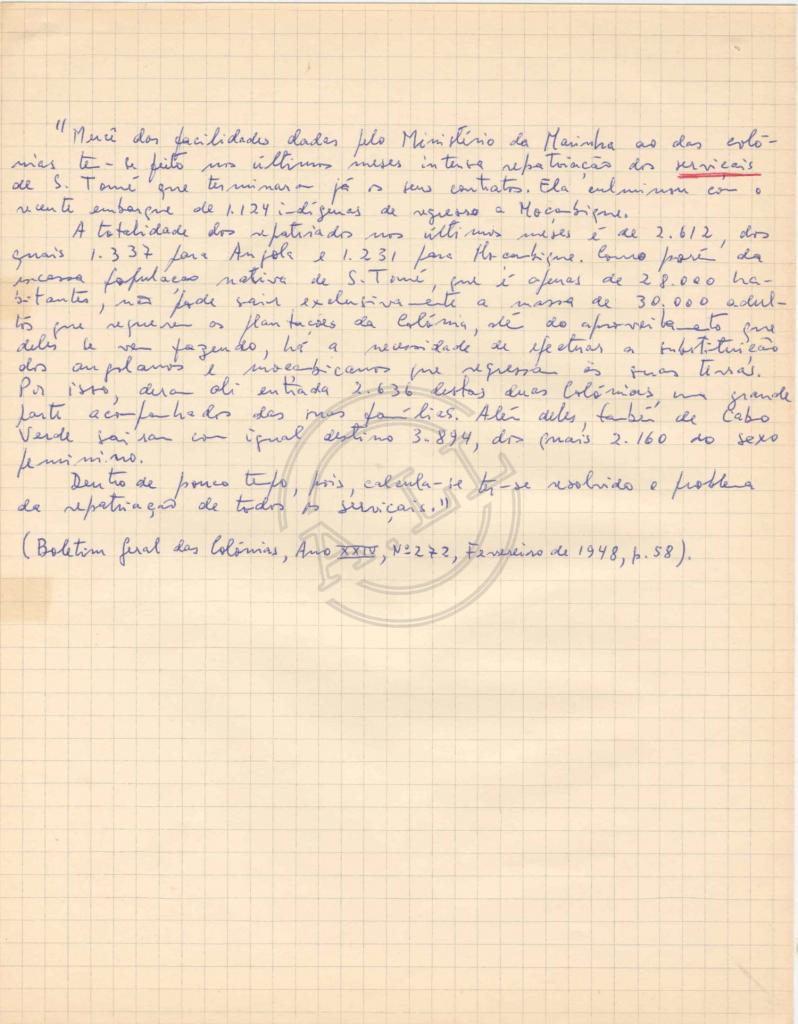 "Mercê das facilidades dadas pelo Ministério da Marinha ao das coló-
nias tem-se feito nos últimos meses intensa repatriação dos serviçais
de S. Tomé que terminaram já os seus contratos. Ela culminou com o
recente embarque de 1.124 indígenas de regresso a Moçambique.
A totalidade dos repatriados nos últimos meses é de 2.612, dos
quais 1.337 para Angola e 1.231 para Moçambique. Como porém da
escassa população nativa de S. Tomé, que é apenas de 28.000 ha-
bitantes, não pode sair exclusivamente a massa de 30.000 adul-
tos que requerem os plantações da Colónia, além do aproveitamento que
deles se vem fazendo, há a necessidade de efectuar a substituição
dos angolanos e moçambicanos que regressam às suas terras.
Por isso, deram ali entrada 2.636 destas duas Colónias, em grande
parte acompanhados das suas famílias. Além deles, também de Cabo
Verde saíram com igual destino 3.894, dos quais 2.160 do sexo
feminino.
Dentro de pouco tempo, pois, calcula-se ter-se resolvido o problema
da repatriação de todos os serviçais."
(Boletim Geral das Colónias, Ano XXIV, Nº 272, Fevereiro de 1948, p. 58).
A.H